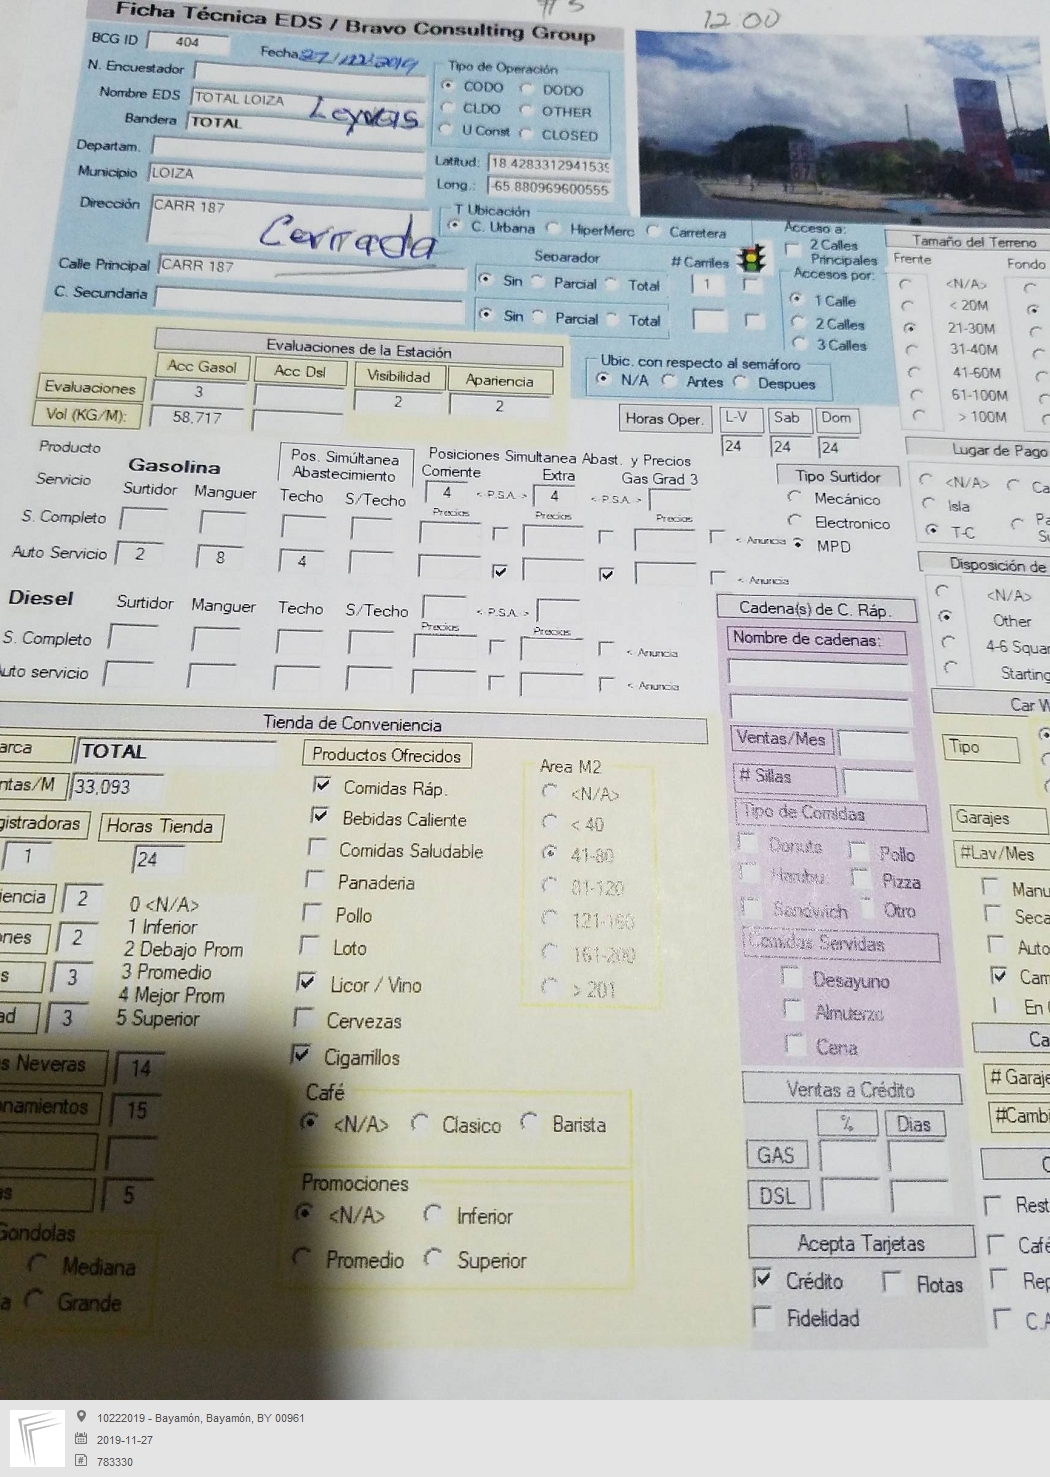 #3 12:00
Ficha Técnica EDS / Bravo Consulting Group
BCG ID 404 Fecha 27/
N. Encuestador
Nombre EDS TOTAL LOIZA
Bandera TOTAL
Departam.
Municipio LOIZA
Dirección CARR 187
Cerrada
Calle Principal CARR 187
C. Secundaria
Tipo de Operación
CODO DODO
CLDO OTHER
U Const CLOSED
Latitud: 18.428331294153
Long.: -65.880969600555
T Ubicación
C. Urbana HiperMerc Carretera
Separador # Carriles
Sin Parcial Total 1
Sin Parcial Total
Acceso a:
2 Calles
Principales
Accesos por:
1 Calle
2 Calles
3 Calles
Tamaño del Terreno
Frente Fondo
<N/A>
< 20M
21-30M
31-40M
41-60M
61-100M
> 100M
Ubic. con respecto al semáforo
N/A Antes Despues
Evaluaciones de la Estación
Acc Gasol Acc Dsl Visibilidad Apariencia
Evaluaciones 3 2 2
Vol (KG/M): 58,717
Horas Oper. L-V Sab Dom
24 24 24
Producto
Servicio
Gasolina
Pos. Simúltanea
Abastecimiento
Posiciones Simultanea Abast. y Precios
Corriente Extra Gas Grad 3
Surtidor Manguer Techo S/Techo 4 < P.S.A. > 4 < P.S.A. >
Precios Precios Precios
S. Completo < Anuncia
Auto Servicio 2 8 4 < Anuncia
Tipo Surtidor
Mecánico
Electronico
MPD
Lugar de Pago
<N/A> Ca
Isla
T-C
Disposición de
<N/A>
Other
4-6 Squar
Starting
Diesel Surtidor Manguer Techo S/Techo < P.S.A. >
Precios Precios
S. Completo < Anuncia
uto servicio < Anuncia
Cadena(s) de C. Ráp.
Nombre de cadenas:
Ventas/Mes
# Sillas
Tipo de Comidas
Donuts Pollo
Hambu. Pizza
Sandwich Otro
Comidas Servidas
Desayuno
Almuerzo
Cena
Tienda de Conveniencia
arca TOTAL
ntas/M 33,093
gistradoras Horas Tienda
1 24
iencia 2
nes 2
s 3
ad 3
0 <N/A>
1 Inferior
2 Debajo Prom
3 Promedio
4 Mejor Prom
5 Superior
s Neveras 14
onamientos 15
as 5
Gondolas
Mediana
a Grande
Productos Ofrecidos
Comidas Ráp.
Bebidas Caliente
Comidas Saludable
Panaderia
Pollo
Loto
Licor / Vino
Cervezas
Cigarrillos
Area M2
<N/A>
< 40
41-80
81-120
121-160
161-200
> 201
Café
<N/A> Clasico Barista
Promociones
<N/A> Inferior
Promedio Superior
Ventas a Crédito
% Dias
GAS
DSL
Acepta Tarjetas
Crédito Flotas
Fidelidad
Car W
Tipo
Garajes
#Lav/Mes
Manu
Seca
Auto
Cam
En
Ca
# Garaje
#Cambi
C
Rest
Café
Rep
C.A
10222019 - Bayamón, Bayamón, BY 00961
2019-11-27
783330